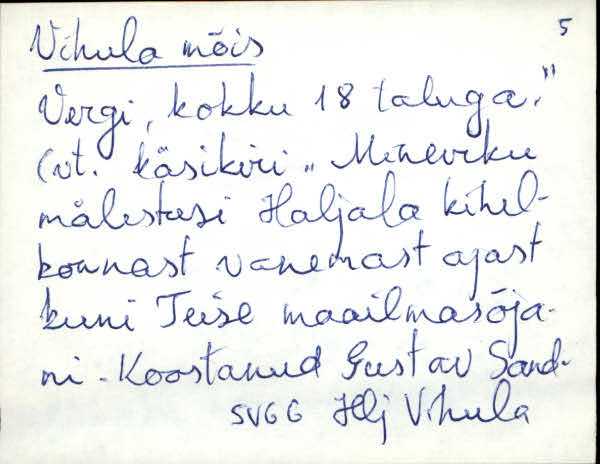 5
Vihula mõis
Vergi, kokku 18 taluga."
(vt. käsikiri „Mineviku
mälestusi Haljala kihel-
konnast vanemast ajast
kuni Teise maailmasõja-
ni. Koostanud Gustav Sand-
SVGG Hlj Vihula